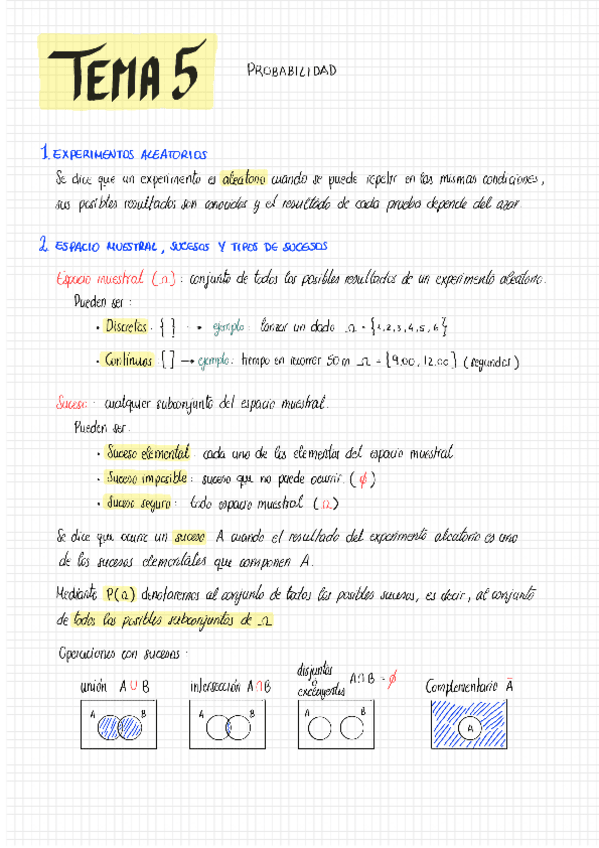 TEMA 5 PROBABILIDAD
1. EXPERIMENTOS ALEATORIOS
Se dice que un experimento es aleatorio cuando se puede repetir en las mismas condiciones,
sus posibles resultados son conocidos y el resultado de cada prueba depende del azar.
2. ESPACIO MUESTRAL, SUCESOS Y TIPOS DE SUCESOS
Espacio muestral (Ω): conjunto de todos los posibles resultados de un experimento aleatorio.
Pueden ser:
· Discretos: { } → ejemplo: lanzar un dado Ω = {1,2,3,4,5,6}
· Contínuos: [ ] → ejemplo: tiempo en recorrer 50m Ω = [9,00, 12,00] (segundos)
Suceso: cualquier subconjunto del espacio muestral.
Pueden ser:
· Suceso elemental: cada uno de los elementos del espacio muestral
· Suceso imposible: suceso que no puede ocurrir. (ϕ)
· Suceso seguro: todo espacio muestral (Ω)
Se dice que ocurre un suceso A cuando el resultado del experimento aleatorio es uno
de los sucesos elementales que componen A.
Mediante P(Ω) denotaremos al conjunto de todos los posibles sucesos, es decir, al conjunto
de todos los posibles subconjuntos de Ω
Operaciones con sucesos:
unión A ∪ B
A B
intersección A ∩ B
A B
disjuntos
o
excluyentes A ∩ B = ϕ
A B
Complementario Ā
A